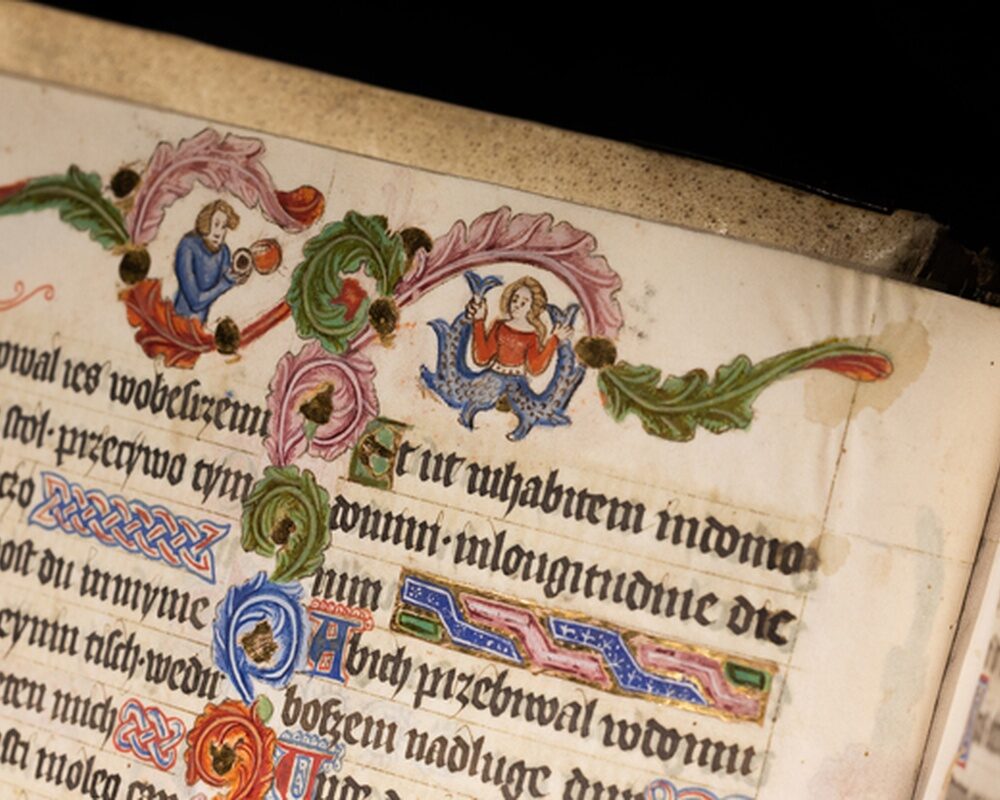 owal ies wobesrzenu
stol · przeciwo tym
czo
ost du in myme
eynin tisch · wedir
eten mich
Et ut inhabitem indomo
domini · inlongitudine die
rum
Abich przebiwal wdomu
boszem nadluge